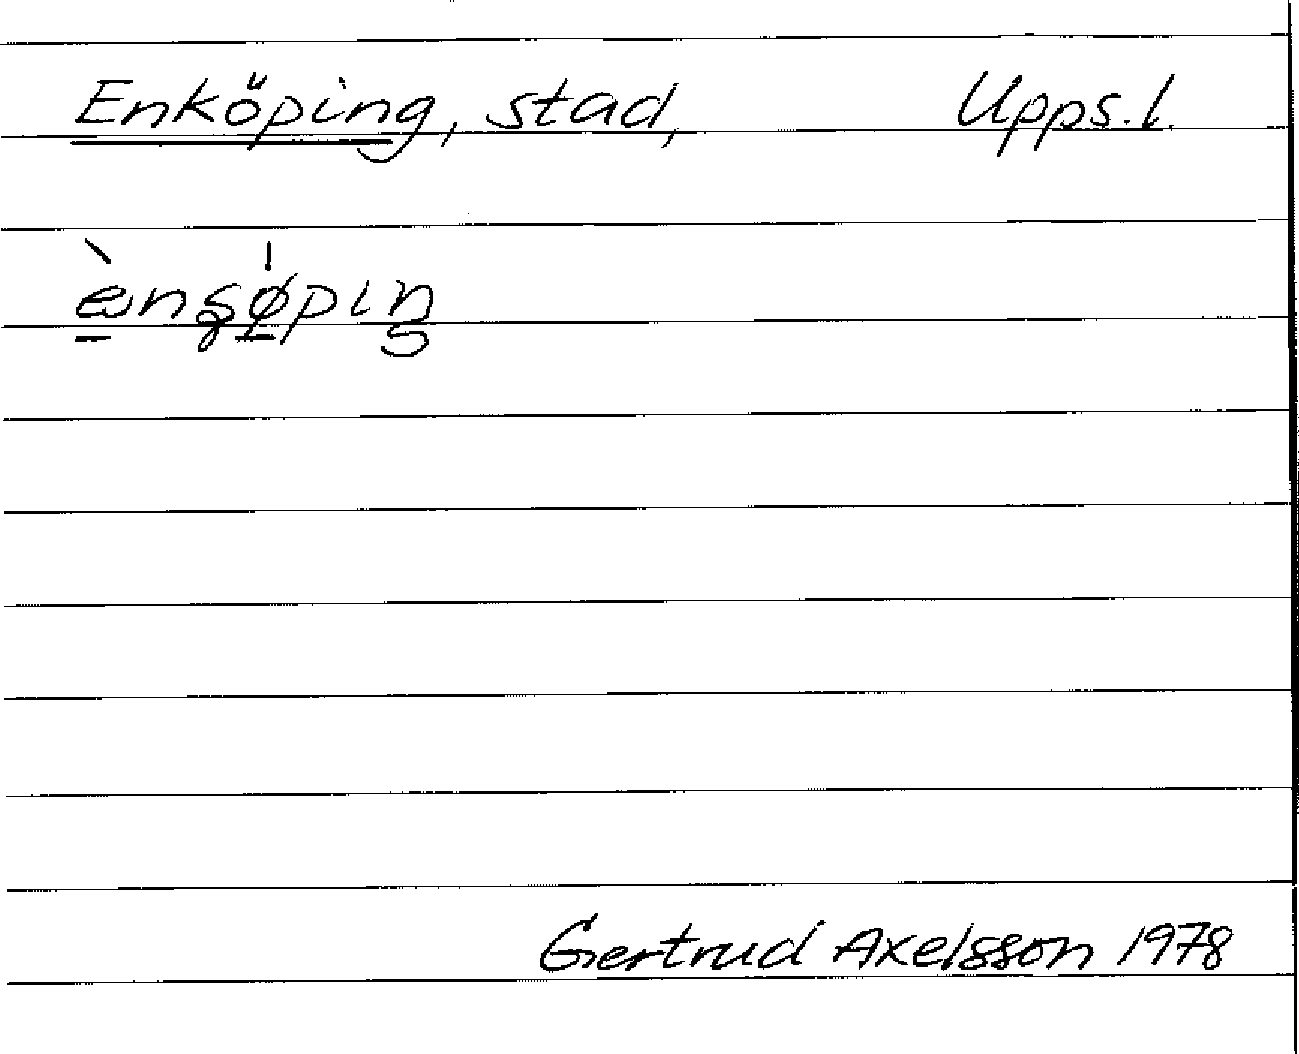 Enköping, stad, Upps.l.
Gertrud Axelsson 1978